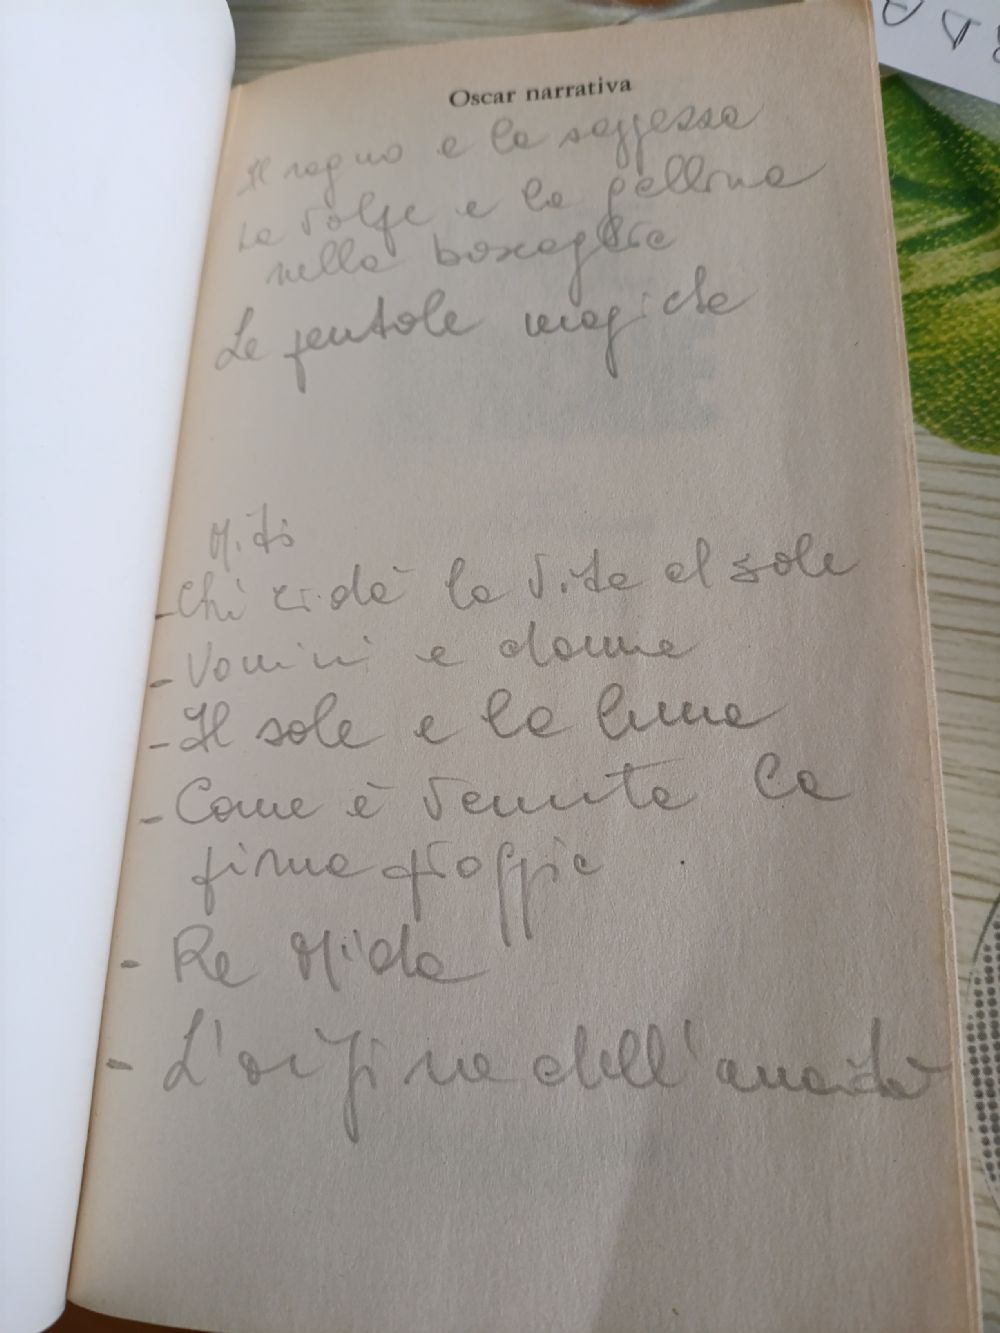 Oscar narrativa
Il ragno e la saggezza
La volpe e la gallina
nella boscaglia
Le pentole magiche
Miti
- Chi ridà la vita al sole
- Uomini e donne
- Il sole e la luna
- Come è venuta la
prima pioggia
- Re Mida
- L'origine dell'umanità